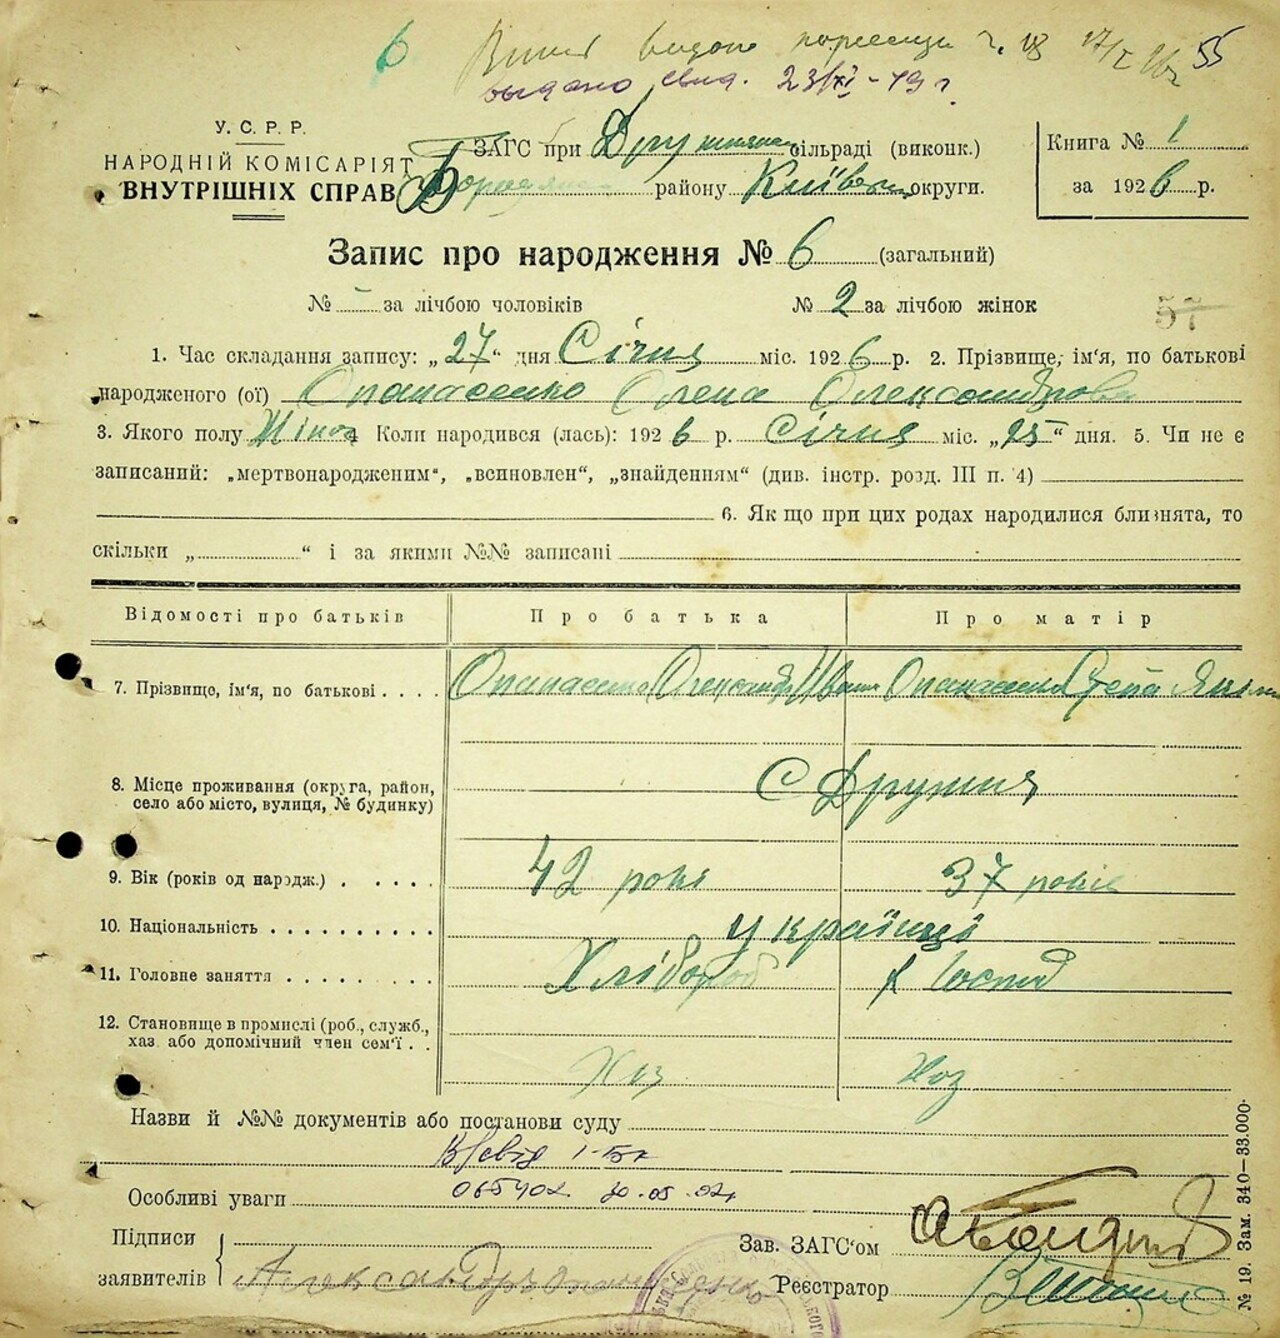 видано свид. 23/XI-49 г.
55
У. С. Р. Р.
НАРОДНІЙ КОМІСАРІЯТ
ВНУТРІШНІХ СПРАВ
ЗАГС при Дружнян сільраді (виконк.)
Бородянс району Київськ округи.
Книга № 1
за 1926 р.
Запис про народження № 6 (загальний)
№ - за лічбою чоловіків № 2 за лічбою жінок
57
1. Час складання запису: „27“ дня Січня міс. 1926 р. 2. Прізвище, ім'я, по батькові
народженого (ої) Опанасенко Олена Олександровна
3. Якого полу Жіноч 4 Коли народився (лась): 1926 р. Січня міс. „25“ дня. 5. Чи не є
записаний: „мертвонародженим“, „всиновлен“, „знайденням“ (див. інстр. розд. III п. 4)
6. Якщо при цих родах народилися близнята, то
скільки „ “ і за якими №№ записані
Відомості про батьків Про батька Про матір
7. Прізвище, ім'я, по батькові . . . . Опанасенко Олександр Іван Опанасенко
8. Місце проживання (округа, район,
село або місто, вулиця, № будинку)
С Дружня
9. Вік (років од народж.) . . . . . 42 рокі 37 років
10. Національність . . . . . . . . . . українці
11. Головне заняття . . . . . . . . . Хлібороб Господ
12. Становище в промислі (роб., служб.,
хаз. або допомічний член сем'ї . .
Хоз Хоз
Назви й №№ документів або постанови суду
Особливі уваги
Підписи
заявителів
Зав. ЗАГС'ом
Реєстратор
№ 19. Зам. 340—33.000.